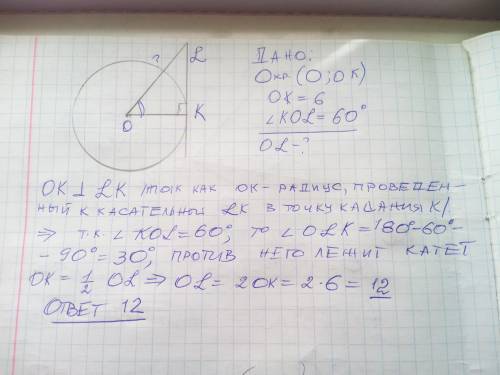 ?
L
O
K
ДАНО:
Окр (O; OK)
OK = 6
∠KOL = 60°
OL - ?
OK ⊥ LK /ТАК КАК OK - РАДИУС, ПРОВЕДЕН-
НЫЙ К КАСАТЕЛЬНОЙ LK В ТОЧКУ КАСАНИЯ K/
⇒ Т.К. ∠KOL = 60°, ТО ∠OLK = 180° - 60° -
- 90° = 30°, ПРОТИВ НЕГО ЛЕЖИТ КАТЕТ
OK = 1/2 OL ⇒ OL = 2OK = 2 · 6 = 12
ОТВЕТ 12